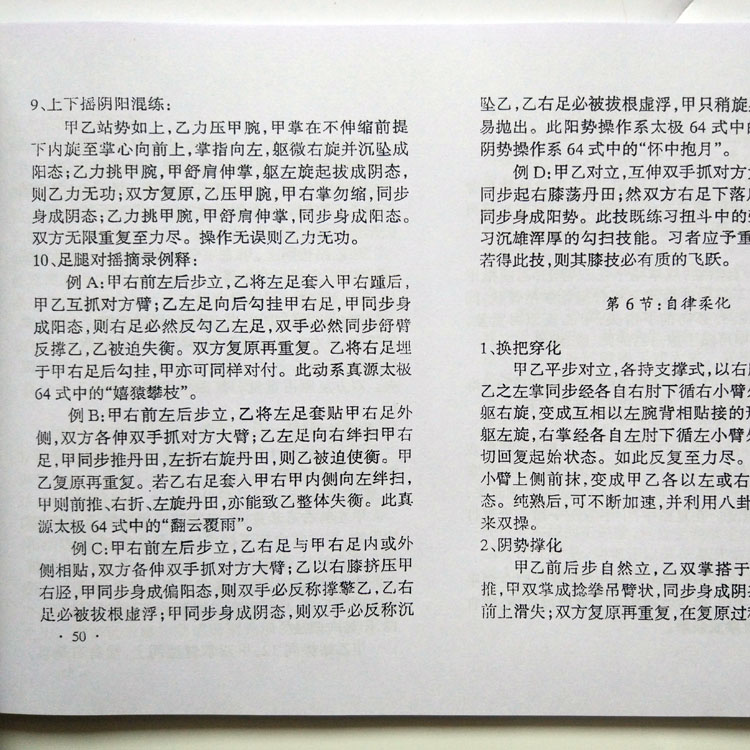 9、上下摇阴阳混练：
甲乙站势如上，乙力压甲腕，甲掌在不伸缩前提
下内旋至掌心向前上，掌指向左，躯微右旋并沉坠成
阳态；乙力挑甲腕，甲舒肩伸掌，躯左旋起拔成阴态，
则乙力无功；双方复原，乙压甲腕，甲右掌勿缩，同步
身成阴态；乙力挑甲腕，甲舒肩伸掌，同步身成阳态。
双方无限重复至力尽。操作无误则乙力无功。
10、足腿对摇摘录例释：
例 A：甲右前左后步立，乙将左足套入甲右踵后，
甲乙互抓对方臂；乙左足向后勾挂甲右足，甲同步身
成阳态，则右足必然反勾乙左足，双手必然同步舒臂
反撑乙，乙被迫失衡。双方复原再重复。乙将右足埋
于甲右足后勾挂，甲亦可同样对付。此动系真源太极
64 式中的“嬉猿攀枝”。
例 B：甲右前左后步立，乙将左足套贴甲右足外
侧，双方各伸双手抓对方大臂；乙左足向右绊扫甲右
足，甲同步推丹田，左折右旋丹田，则乙被迫使衡。甲
乙复原再重复。若乙右足套入甲右甲内侧向左绊扫，
甲则前推、右折、左旋丹田，亦能致乙整体失衡。此真
源太极 64 式中的“翻云覆雨”。
例 C：甲右前左后步立，乙右足与甲右足内或外
侧相贴，双方备伸双手抓对方大臂；乙以右膝挤压甲
右胫，甲同步身成偏阳态，则双手必反称撑擎乙，乙右
足必被拔根虚浮；甲同步身成阴态，则双手必反称沉
· 50 ·
坠乙，乙右足必被拔根虚浮，甲只稍旋
易抛出。此阳势操作系太极 64 式中的
阴势操作系 64 式中的“怀中抱月”。
例 D：甲乙对立，互伸双手抓对方大
同步起右膝荡丹田；然双方右足下落
同步身成阳势。此技既练习扭斗中的
习沉雄浑厚的勾扫技能。习者应予重
若得此技，则其膝技必有质的飞跃。
第 6 节：自律柔化
1、换把穿化
甲乙平步对立，各持支撑式，以右
乙之左掌同步经各自右肘下循右小臂
躯右旋，变成互相以左腕背相贴接的
躯左旋，右掌经各自左肘下循左小臂
切回复起始状态。如此反复至力尽。
小臂上侧前抹，变成甲乙各以左或右
态。纯熟后，可不断加速，并利用八卦
来双操。
2、阴势撑化
甲乙前后步自然立，乙双掌搭于
推，甲双掌成捻拳吊臂状，同步身成阴
前上滑失；双方复原再重复，在复原过